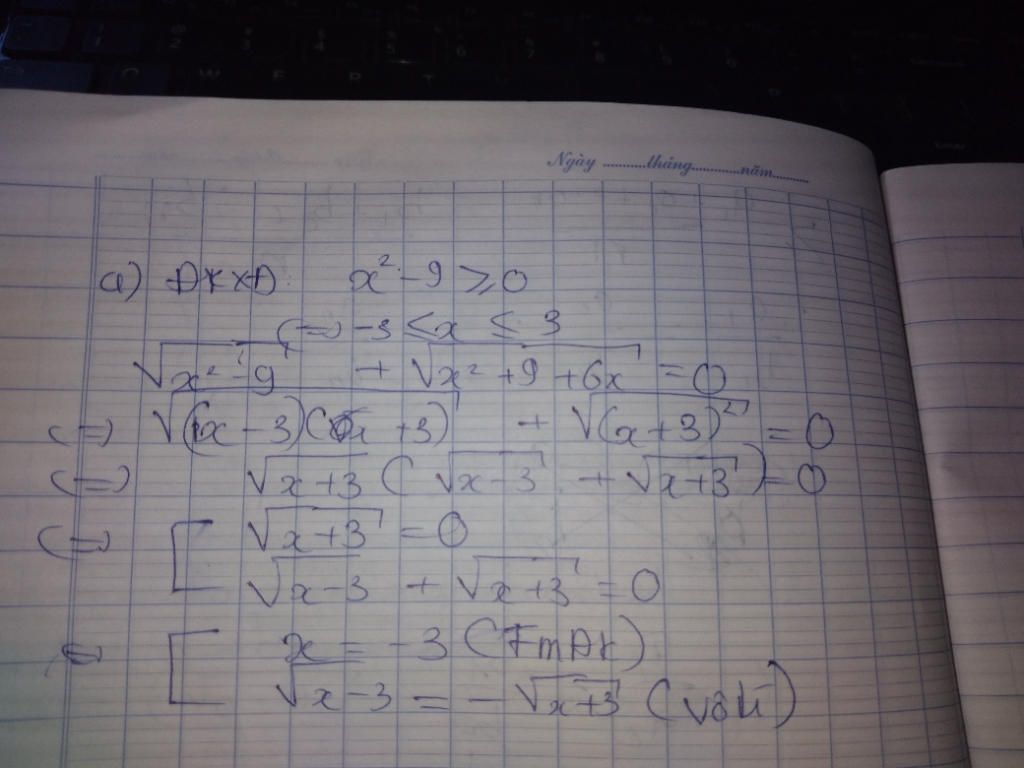 Ngày ...........tháng............năm..........
a) ĐKXĐ: x² - 9 ≥ 0
(=) -3 ≤ x ≤ 3
√(x² - 9) + √(x² + 9 + 6x) = 0
(=) √((x - 3)(x + 3)) + √((x + 3)²) = 0
(=) √(x + 3) (√(x - 3) + √(x + 3)) = 0
(=) [ √(x + 3) = 0
√(x - 3) + √(x + 3) = 0
(=) [ x = -3 (TmĐk)
√(x - 3) = - √(x + 3) (vô lí)